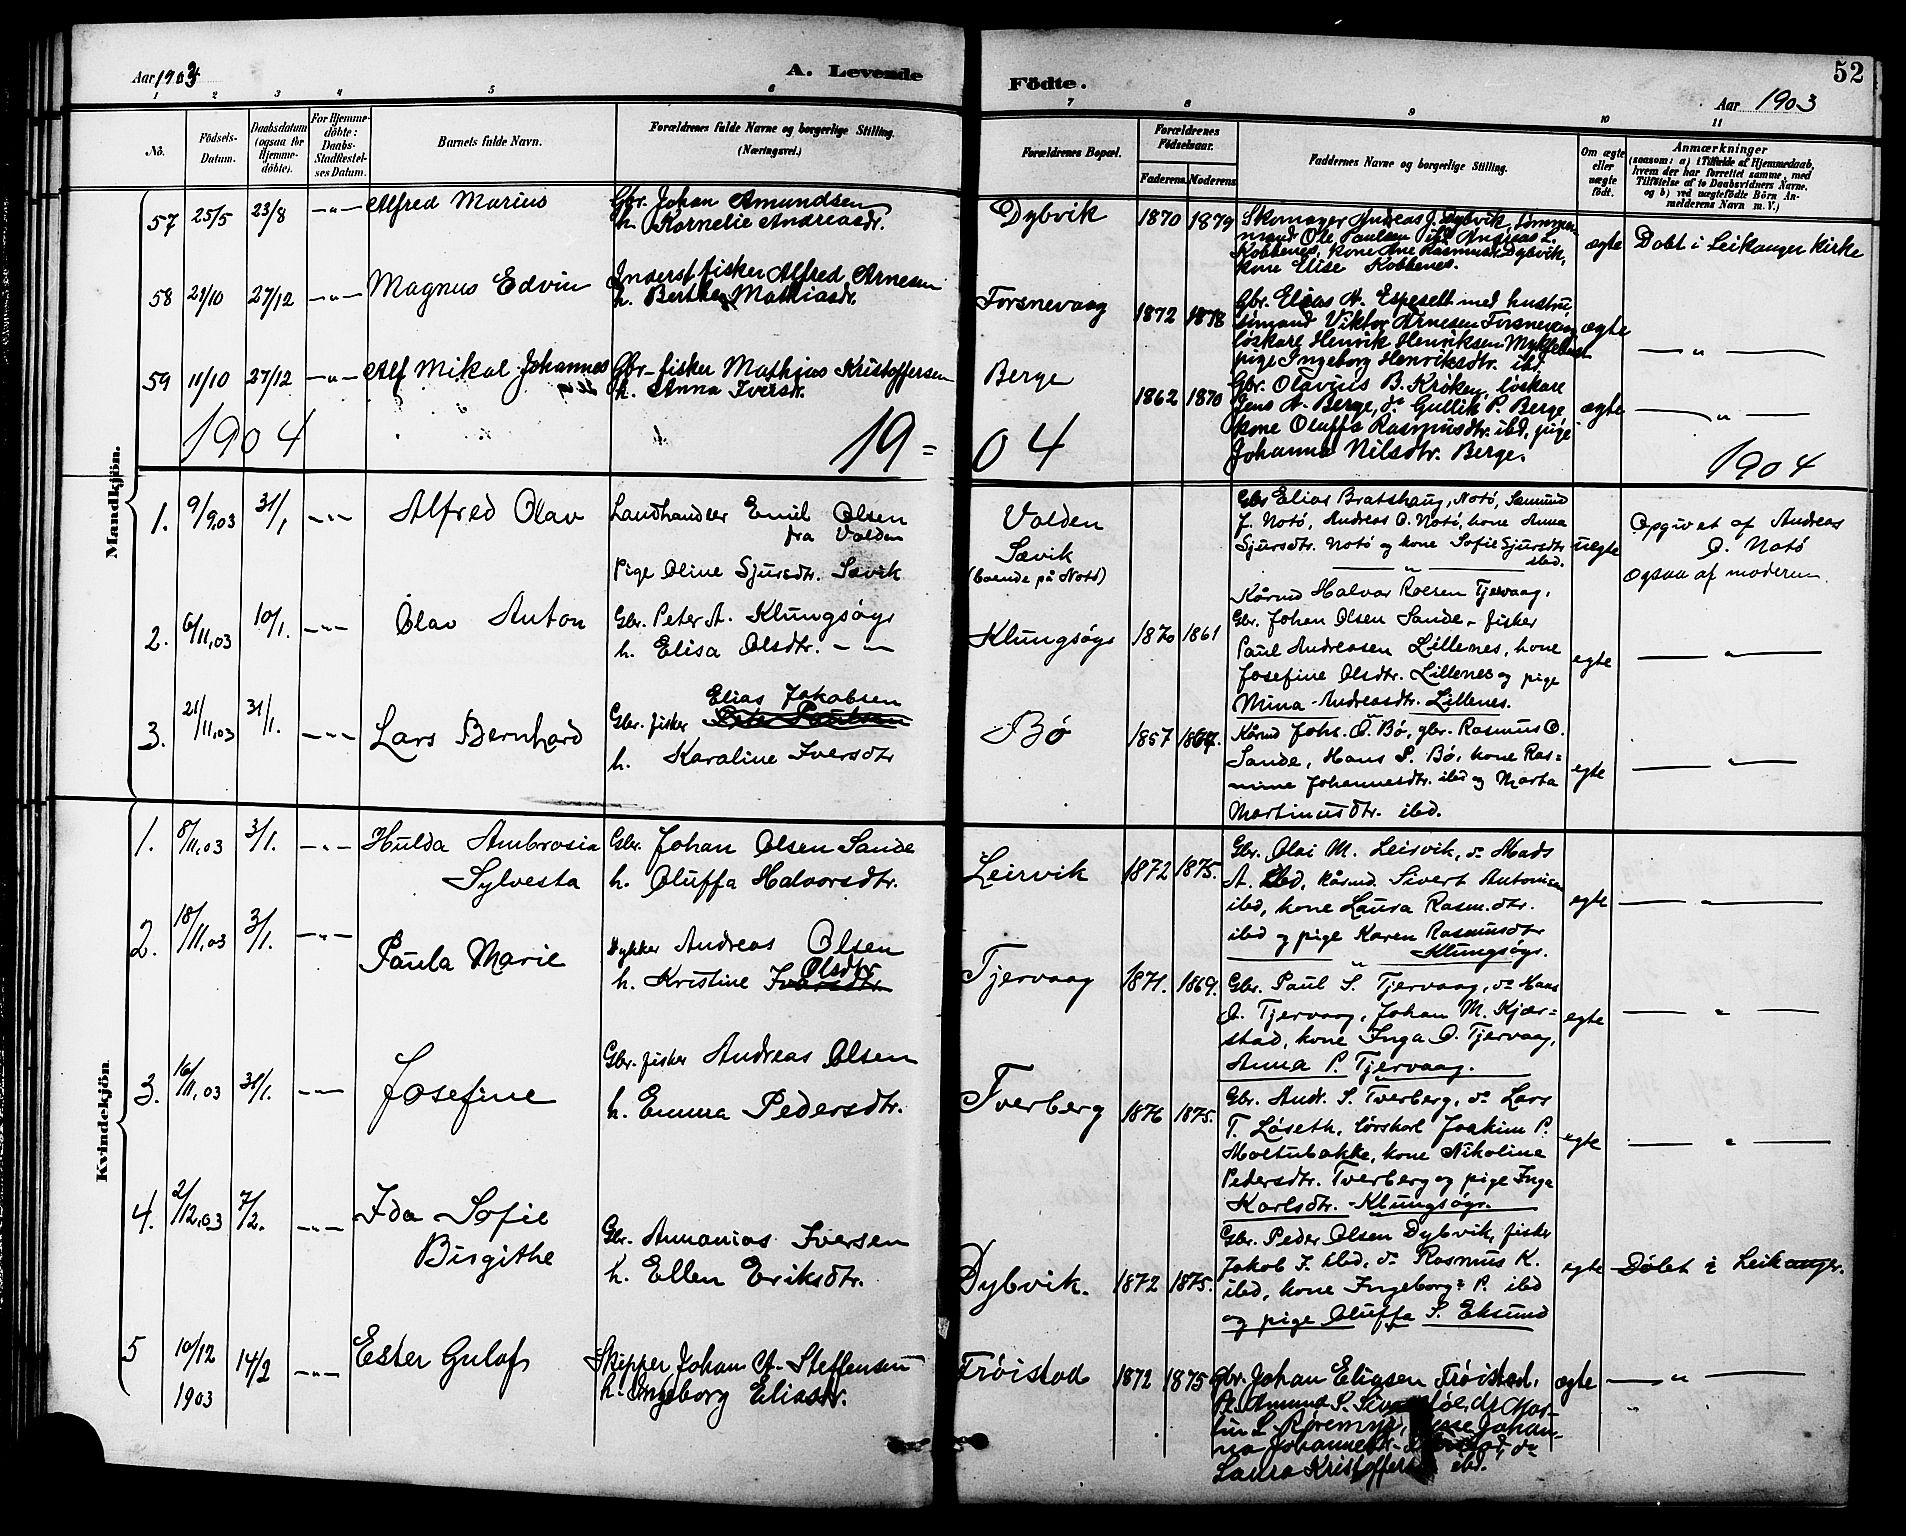 Aar 1903
A. Levende
Födte.
52
Aar 1903
1 2 3 4 5 6 7 8 9 10 11
No.
Födsels-
Datum.
Daabsdatum
(ogsaa for
Hjemme-
döbte).
For Hjemme-
döbte:
Daabs-
Stadfæstel-
ses Datum.
Barnets fulde Navn.
Forældrenes fulde Navne og borgerlige Stilling.
(Næringsvei.)
Forældrenes Bopæl.
Forældrenes
Födselsaar.
Faderens. Moderens.
Faddernes Navne og borgerlige Stilling.
Om ægte
eller
uægte
født.
Anmærkninger
(saasom: a) i Tilfælde af Hjemmedaab,
hvem der har forrettet samme, med
Tilföielse af to Daabsvidners Navne,
og b) ved uægtefödte Börn An-
melderens Navn m. V.)
Mandkjön.
57 25/5 23/8 -"- Alfred Marius
Gbr. Johan Amundsen
h. Kornelie Andreasdr.
Dybvik 1870 1879
Skomager Andreas J. Dybvik, tømmer
mand Ole Paulsen ibd Andreas L.
Kobbenes, kone Ane Rasmusd. Dybvik,
kone Elise Kobbenes.
ægte Døbt i Leikanger kirke
58 21/10 27/12 -"- Magnus Edvin
Inderst fisker Alfred Arnesen
h. Berthe Mathiasdr.
Forsnevaag 1872 1878
Gbr. Elias A. Espeseth med hustru,
sømand Viktor Arnesen Forsnevaag
løskare Henrik Henriksen Myklebust
pige Ingeborg Henriksdtr. ibd.
ægte — " —
59 11/10 27/12 -"- Alf Mikal Johannes
Gbr-fisker Mathias Kristoffersen
h. Anna Iversdr.
Berge 1862 1870
Gbr. Olavius B. Krøken, løskare
Jens A. Berge, do Gullik P. Berge
kone Oluffa Rasmusdtr. ibd, pige
Johanna Nilsdtr. Berge.
ægte — " —
1904 19=04 1904
1. 9/9,03 31/1 -"- Alfred Olav
Landhandler Emil Olsen
fra Volden
Pige Oline Sjursdtr. Sævik
Volden
Sævik
(boende på Notø)
Gbr Elias Bratshaug, Notø, Samund
J. Notø, Andreas O. Notø, kone Anna
Sjursdtr. Notø og kone Sofie Sjursdtr
ibd.
uegte
Opgivet af Andreas
O. Notø
ogsaa af moderen
2. 6/11,03 10/1. -"- Olav Anton
Gbr. Peter A. Klungsøyr
h. Elisa Olsdtr. - " -
Klungsøyr 1870 1861
Kårmd Halvor Roesen Tjervaag,
Gbr. Johan Olsen Sande - fisker
Paul Andreasen Lillenes, kone
Josefine Olsdtr. Lillenes og pige
Mina Andreasdtr. Lillenes.
egte — " —
3. 21/11,03 31/1. -"- Lars Bernhard
Elias Jakobsen
Gbr. fisker
h. Karaline Iversdtr
Bø 1857 1867.
Kårmd Johs. O. Bø, gbr. Rasmus O.
Sande, Hans P. Bø, kone Ras-
mine Johannesdtr. ibd og Marta
Martinusdtr. ibd.
egte — " —
Kvindekjön
1. 8/11,03 3/1. -"- Hulda Ambrosia
Sylvesta
Gbr. Johan Olsen Sande
h. Oluffa Halvorsdtr.
Leirvik 1872 1875.
Gbr. Olai M. Leirvik, do Mads
A. ibd, kårmd. Sivert Antonisen
ibd, kone Laura Rasm.dtr.
ibd og pige Karen Rasmusdtr
Klungsøyr.
egte — " —
2. 18/11,03 3/1. -"- Paula Marie
Dykker Andreas Olsen
h. Kristine Olsdtr
Tjervaag 1871. 1869.
Gbr. Paul S. Tjervaag, do Hans
O. Tjervaag, Johan M. Kjær=
stad, kone Inga O. Tjervaag,
Anna P. Tjervaag.
egte — " —
3. 16/11,03 31/1. -"- Josefine
Gbr. fisker Andreas Olsen
h. Emma Pedersdtr.
Tverberg 1876 1875.
Gbr. Andr. S. Tverberg, do Lars
T. Løseth, lørskarl Joakim P.
Moltubakke, kone Nikoline
Pedersdtr. Tverberg og pige Inga
Karlsdtr. - Klungsøyr.
egte — " —
4. 2/12,03 7/2. -"- Ida Sofie
Birgithe
Gbr. Annanias Iversen
h. Ellen Eriksdtr.
Dybvik. 1872 1875.
Gbr. Peder Olsen Dybvik, fisker
Jakob I. ibd, do Rasmus K.
ibd, kone Ingeborg P. ibd
og pige Oluffa S. Eksund
egte Døbt i Leikanger.
5 10/12 1903 14/2 -"- Ester Gulaf
Skipper Johan A. Steffensen
h. Ingeborg Eliasdr.
Frøistad 1872 1875
Gbr. Johan Eliasen Frøistad,
Laura ibd.
ægte — " —